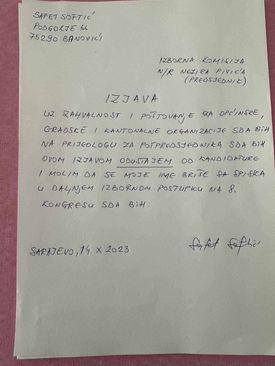 SAFET SOFTIĆ
PODGORJE bb
75290 BANOVIĆI
IZBORNA KOMISIJA
N/R NEZIRA PIVIĆA
(PREDSJEDNIK)
IZJAVA
UZ ZAHVALNOST I POŠTOVANJE ZA OPĆINSKE,
GRADSKE I KANTONALNE ORGANIZACIJE SDA BIH
NA PRIJEDLOGU ZA POTPREDSJEDNIKA SDA BIH
OVOM IZJAVOM ODUSTAJEM OD KANDIDATURE
I MOLIM DA SE MOJE IME BRIŠE SA SPISKA
U DALJNJEM IZBORNOM POSTUPKU NA 8.
KONGRESU SDA BIH.
SARAJEVO, 14. X 2023
Safet Softić